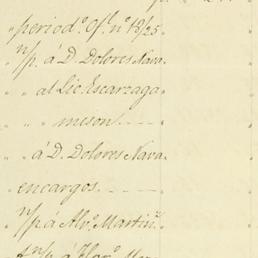 " period.º Of.l n.º 18/25
" n/p. á D. Dolores Nava
" " al Lic. Escarzaga
" " meson
" " á D. Dolores Nava
encargos
" n/p á Alv.º Martin.z